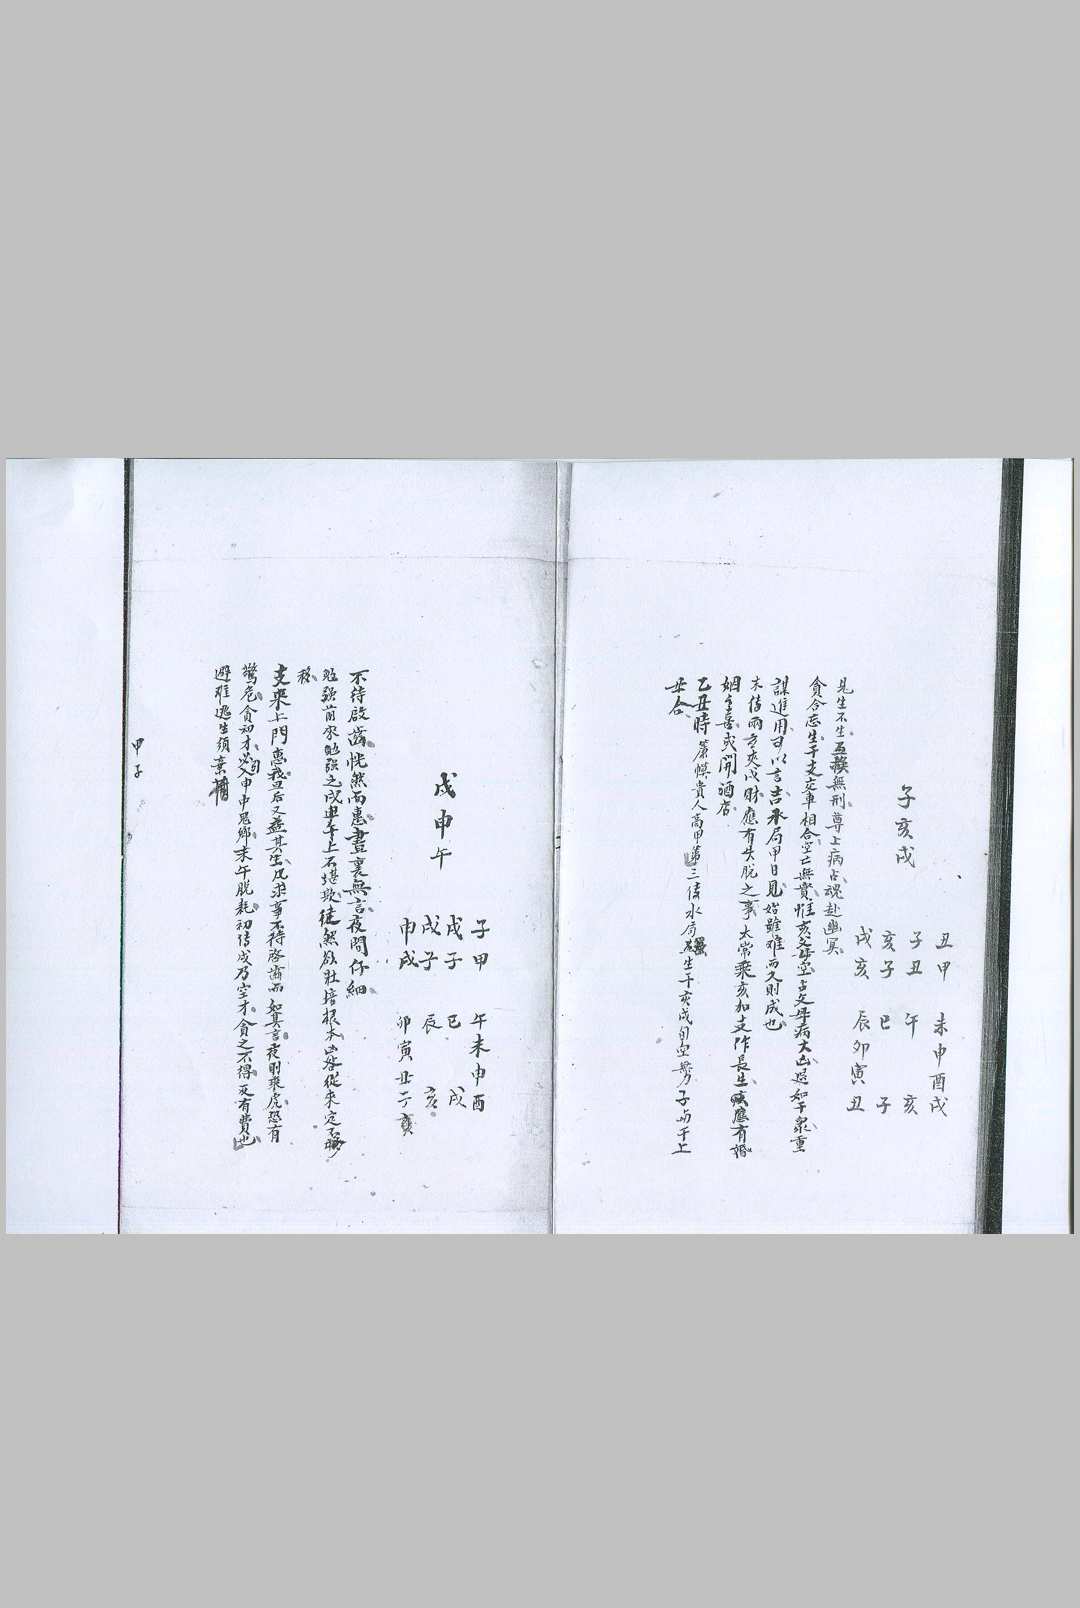 子亥戌
丑甲 未申酉戌
子丑 午 亥
亥子 巳 子
戌亥 辰卯寅丑
見生不生互換無刑尊上病占魂赴幽冥
貪合忘生干支交車相合空亡無貴惟亥父母空占父母病大凶
謀進用日以言吉 局甲日見始雖难而久則成也
末傳 夾 財應有失脫之事太常乘亥加支作長生 應有婚
姻 喜或開酒店
乙丑時簾幙貴人高甲第三傳水局 生干亥戌旬空 子与干上
丑合
戌申午
子甲 午未申酉
戌子 巳 戌
戌子 辰 亥
申戌 卯寅丑子亥
不待啟齒恍然而惠晝裏無言夜間仔細
勉强前求勉强之戌 上不堪欺徒然欲壯培根本凶 從來定不
移
支來上門惠我旦后又 其生凡求事不待啓齒而如其言夜則乘虎恐有
驚危貪初才必 申中鬼鄉末午脫耗初傳戌乃空才貪之不得反有費也
避难逃生須棄舊
甲子